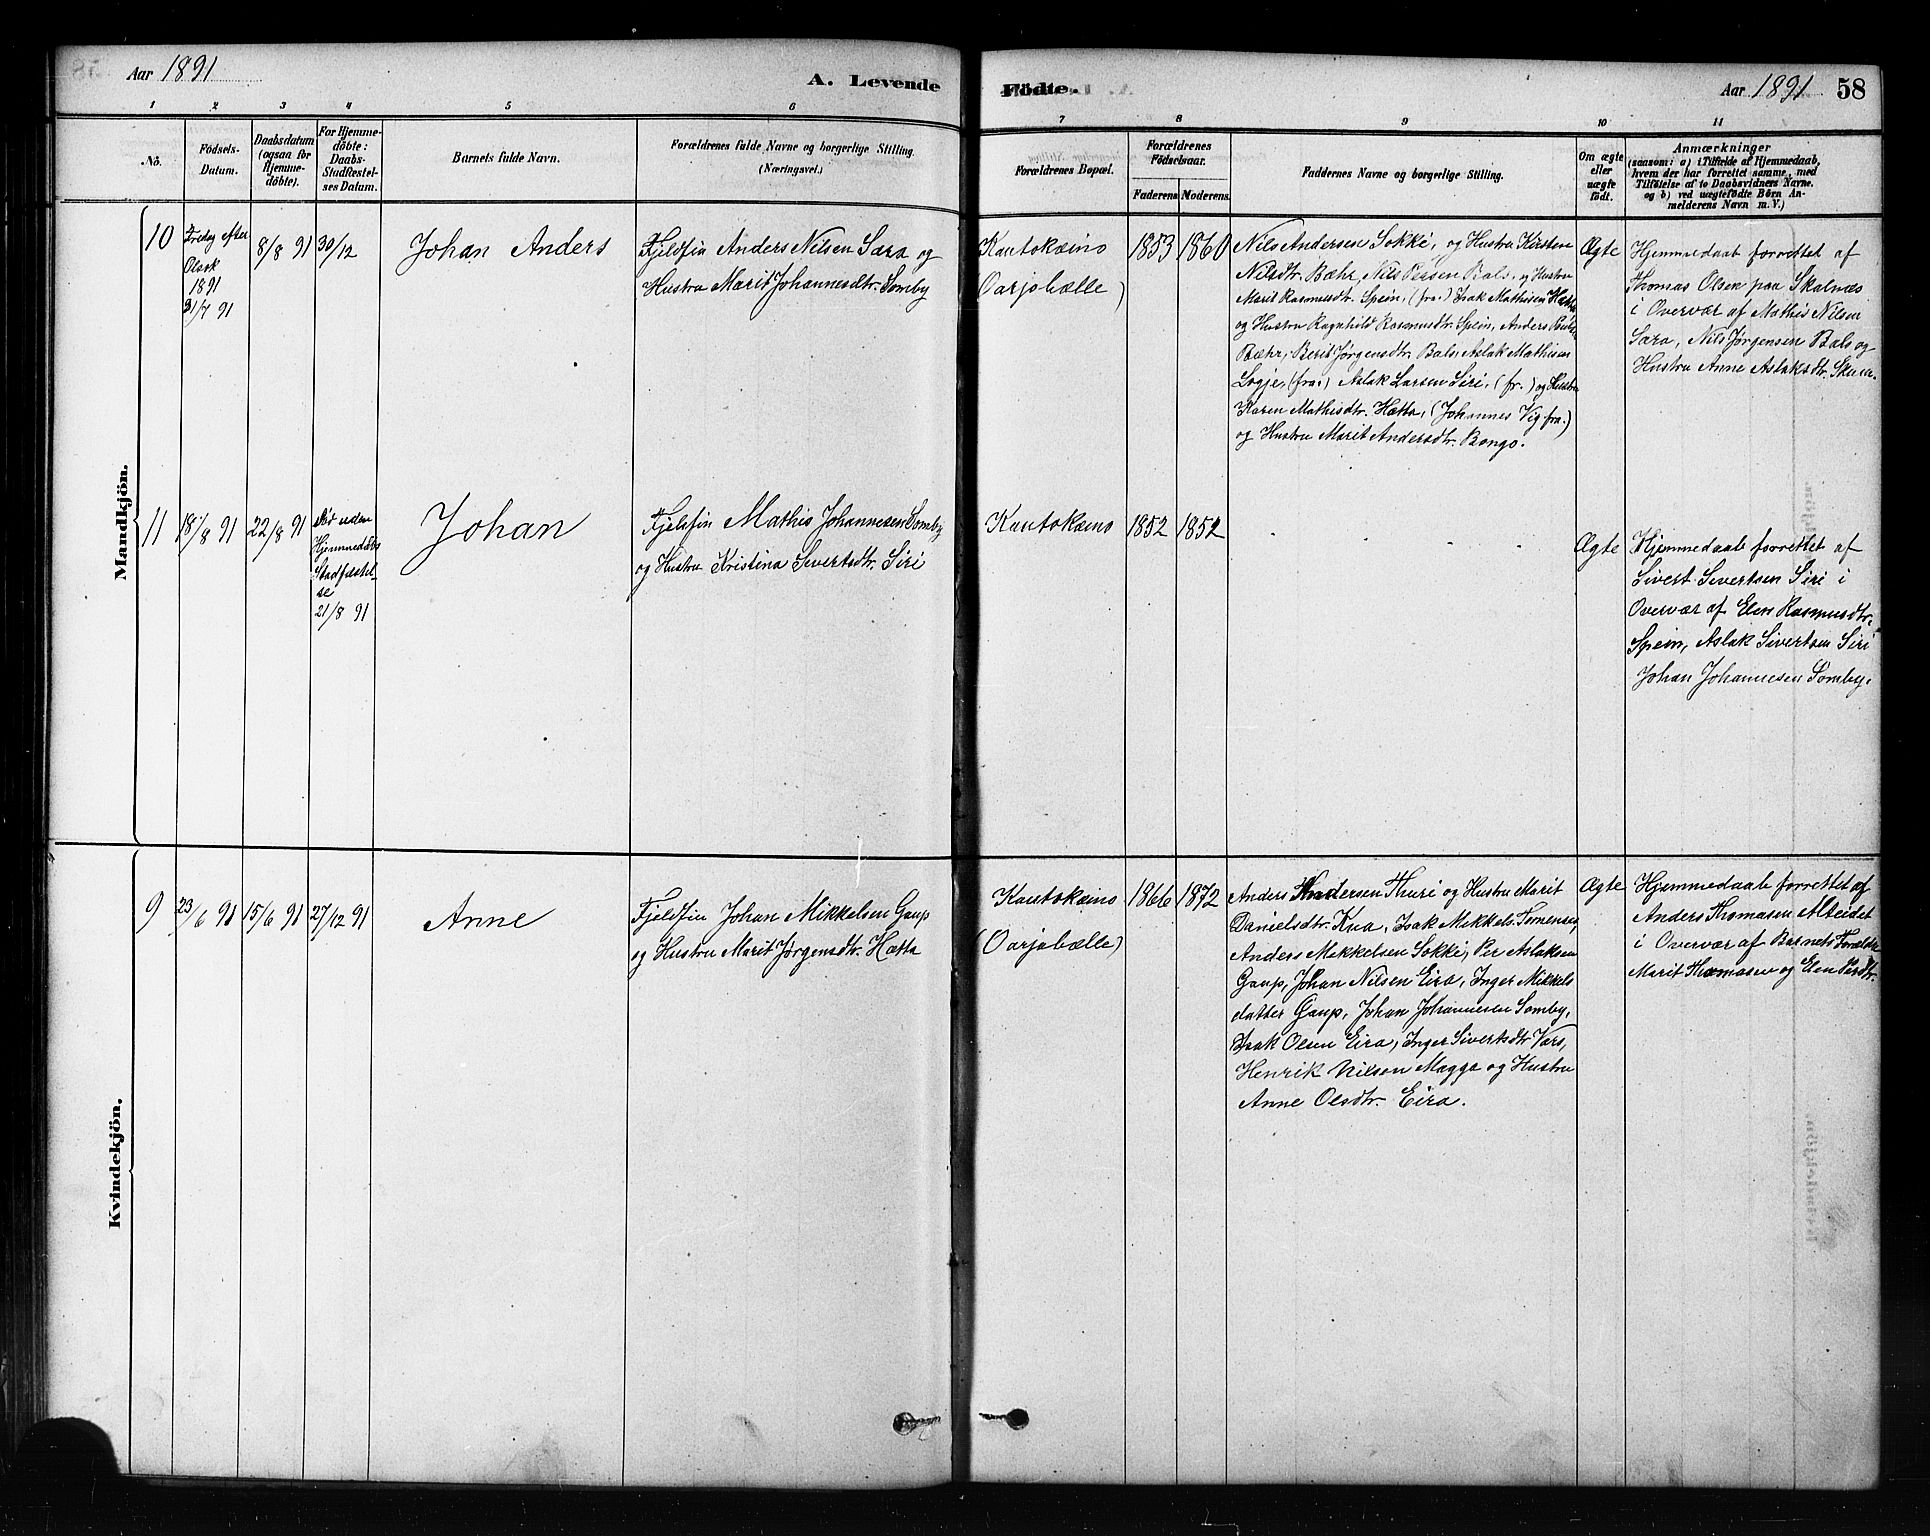 Aar 1891
A. Levende
Födte.
Aar 1891
58
1 2 3 4 5 6
7 8 9 10 11
No.
Födsels-
Datum.
Daabsdatum
(ogsaa for
Hjemme-
döbte).
For Hjemme-
döbte:
Daabs-
Stadfæstel-
ses Datum.
Barnets fulde Navn.
Forældrenes fulde Navne og borgerlige Stilling.
(Næringsvei.)
Forældrenes Bopæl.
Forældrenes
Födselsaar.
Faderens. Moderens.
Faddernes Navne og borgerlige Stilling.
Om ægte
eller
uægte
födt.
Anmærkninger
(saasom: a) i Tilfælde af Hjemmedaab,
hvem der har forrettet samme, med
Tilföielse af to Daabsvidners Navne,
og b) ved uægtefödte Börn An-
melderens Navn m. V.)
Mandkjön.
10
Fredag efter
Olsok
1891
31/7 91
8/8 91
30/12
Johan Anders
Fjeldfin Anders Nilsen Sara og
Hustru Marit Johannesdtr. Somby
Kautokæino
(Oarjobælle)
1853
1860
Nils Andersen Sokki, og Hustru Kirsten
Nilsdtr. Bæhr, Nils Persen Bals, og Hustru
Marit Rasmusdtr. Spein, (fra.) Isak Mathisen Hætta
og Hustru Ragnhild Rasmusdtr. Spein, Anders Poulsen
Bæhr, Berit Jørgensdtr. Bals, Aslak Mathisen
Logje, (fra.) Aslak Larsen Siri, (fr.) og Hustru
Karen Mathisdtr. Hætta, (Johannes Vig fra.)
og Hustru Marit Andersdtr. Bongo.
Ægte
Hjemmedaab forrettet af
Thomas Olsen paa Skalnæs
i Overvær af Mathis Nilsen
Sara, Nils Jørgensen Bals og
Hustru Anne Aslaksdtr. Skum.
11
18/8 91
22/8 91
Død uden
Hjemmedaabs
Stadfæstel-
se
21/8 91
Johan
Fjeldfin Mathis Johannesen Somby
og Hustru Kristina Sivertsdtr. Siri
Kautokæino
1852
1852
Ægte
Hjemmedaab forrettet af
Sivert Sivertsen Siri i
Overvær af Elen Rasmusdtr.
Spein, Aslak Sivertsen Siri
Johan Johannesen Somby.
Kvindekjön.
9
23/6 91
15/6 91
27/12 91
Anne
Fjeldfin Johan Mikkelsen Gaup
og Hustru Marit Jørgensdtr. Hætta
Kautokæino
(Oarjobælle)
1866
1872
Anders Andersen Thuri og Hustru Marit
Danielsdtr. Kua, Isak Mikkels. Tornensis,
Anders Mikkelsen Sokki, Per Aslaksen
Gaup, Johan Nilsen Eira, Inger Mikkels
datter Gaup, Johan Johannesen Somby,
Isak Olsen Eira, Inger Sivertsdtr. Vars,
Henrik Nilsen Magga og Hustru
Anne Olsdtr. Eira.
Ægte
Hjemmedaab forrettet af
Anders Thomasen Alteidet
i Overvær af Barnets Forældre
Marit Thomasen og Elen Persdtr.